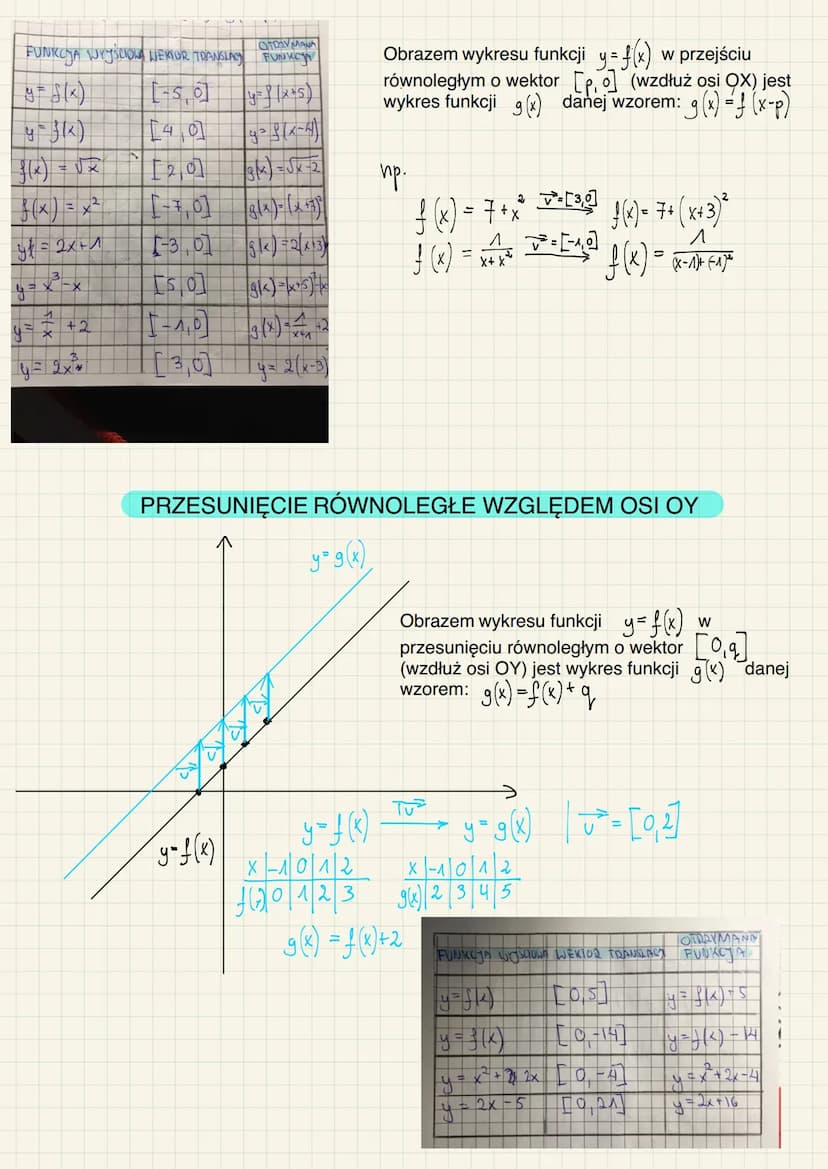 FUNKCJA WYJŚCIOWA WEKTOR TRANSLACJI OTRZYMANA FUNKCJA
y = f(x) [-5,0] y=f(x+5)
y = f(x) [4,0] y= f(x-4)
f(x) = √x [2,0] g(x)=√x-2
f(x) = x² [-7,0] g(x)=(x+7)²
= 2x+1 [-3,0] g(x)=2(x+3)
y = x³-x [5,0]
y = 1/x +2 [-1,0] g(x)=1/x+1 +2
y = 2x³ [3,0] y= 2(x-3)
Obrazem wykresu funkcji y=f(x) w przejściu
równoległym o wektor [p,0] (wzdłuż osi OX) jest
wykres funkcji g(x) danej wzorem: g(x)=f(x-p)
np.
f(x) = 7+x² v=[3,0] f(x)= 7+(x+3)²
f(x) = 1/x+x² v=[-1,0] f(x)= 1/(x-1)+(-1)²
PRZESUNIĘCIE RÓWNOLEGŁE WZGLĘDEM OSI OY
y=g(x)
Obrazem wykresu funkcji y=f(x) w
przesunięciu równoległym o wektor [0,q]
(wzdłuż osi OY) jest wykres funkcji g(x) danej
wzorem: g(x)=f(x)+q
v v v v
y=f(x)
y=f(x) Tv y=g(x) | v=[0,2]
x |-1|0|1|2 x |-1|0|1|2
f(x)|0|1|2|3 g(x)|2|3|4|5
g(x) = f(x)+2
FUNKCJA WYJŚCIOWA WEKTOR TRANSLACJI OTRZYMANA FUNKCJA
y=f(x) [0,5] y= f(x)+5
y=f(x) [0,-14] y=f(x)-14
y= x²+ 2x [0,-4] y=x²+2x-4
y= 2x-5 [0,21] y=2x+16